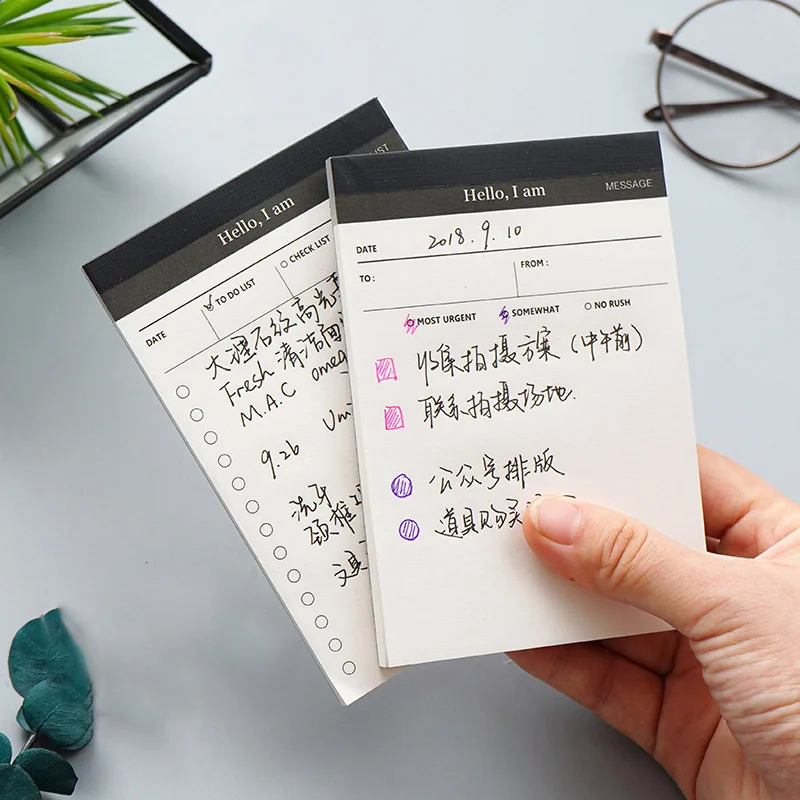 Hello, I am
LIST
TO DO LIST
CHECK LIST
DATE
大理石纹高光
Fresh 清洁面
M.A.C omeg
Uni
9.26
洗牙
颈椎
文具
Hello, I am
MESSAGE
DATE 2018.9.10
TO:
FROM:
MOST URGENT SOMEWHAT NO RUSH
收集拍摄方案(中午前)
联系拍摄场地.
公众号排版
道具购买